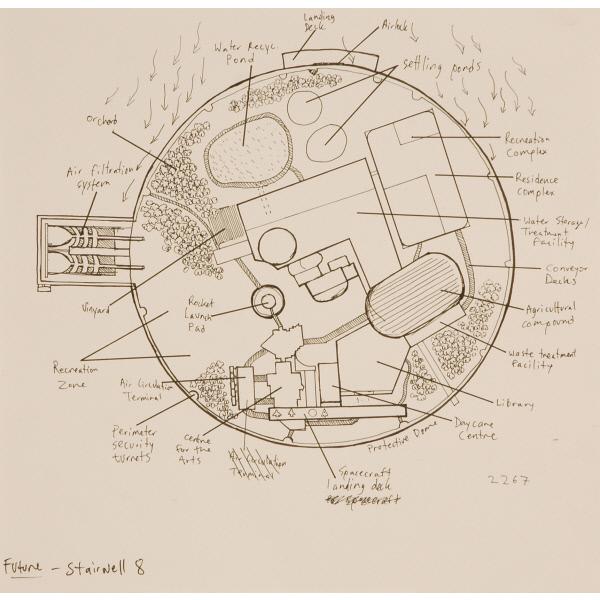 Landing
Deck
Airlock
Water Recyc.
Pond
settling ponds
Orchard
Air filtration
system
Recreation
Complex
Residence
complex
Water Storage/
Treatment
Facility
Conveyor
Decks
Vinyard
Rocket
Launch
Pad
Agricultural
compound
Waste treatment
Facility
Recreation
Zone
Air Circulation
Terminal
Library
Perimeter
security
turrets
Centre
for the
Arts
Air Circulation
Terminal
Daycare
Centre
Protective Dome
Spacecraft
landing deck
2267
Future - Stairwell 8